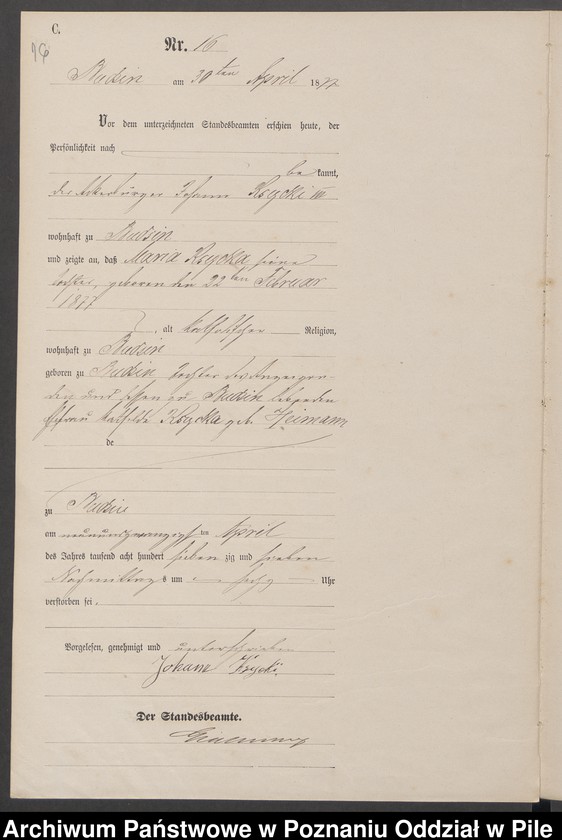 C.
16
Nr. 16
Budsin am 30ten April 1877
Vor dem unterzeichneten Standesbeamten erschien heute, der
Persönlichkeit nach
bekannt,
der Ackerbürger Johann Ksycki III
wohnhaft zu Budsin
und zeigte an, daß Maria Ksycka, seine
Tochter, geboren den 22ten Februar
1877
, alt katholischer Religion,
wohnhaft zu Budsin
geboren zu Budsin, Tochter des Anzeigen-
den und dessen zu Budsin lebenden
Ehefrau Ksycka geb. Heimann
de
zu Budsin
am neunundzwanzigsten April
des Jahres tausend acht hundert siebenzig und sieben
Nachmittags um sechs Uhr
verstorben sei.
Vorgelesen, genehmigt und unterschrieben
Johann Ksycki
Der Standesbeamte.
Archiwum Państwowe w Poznaniu Oddział w Pile